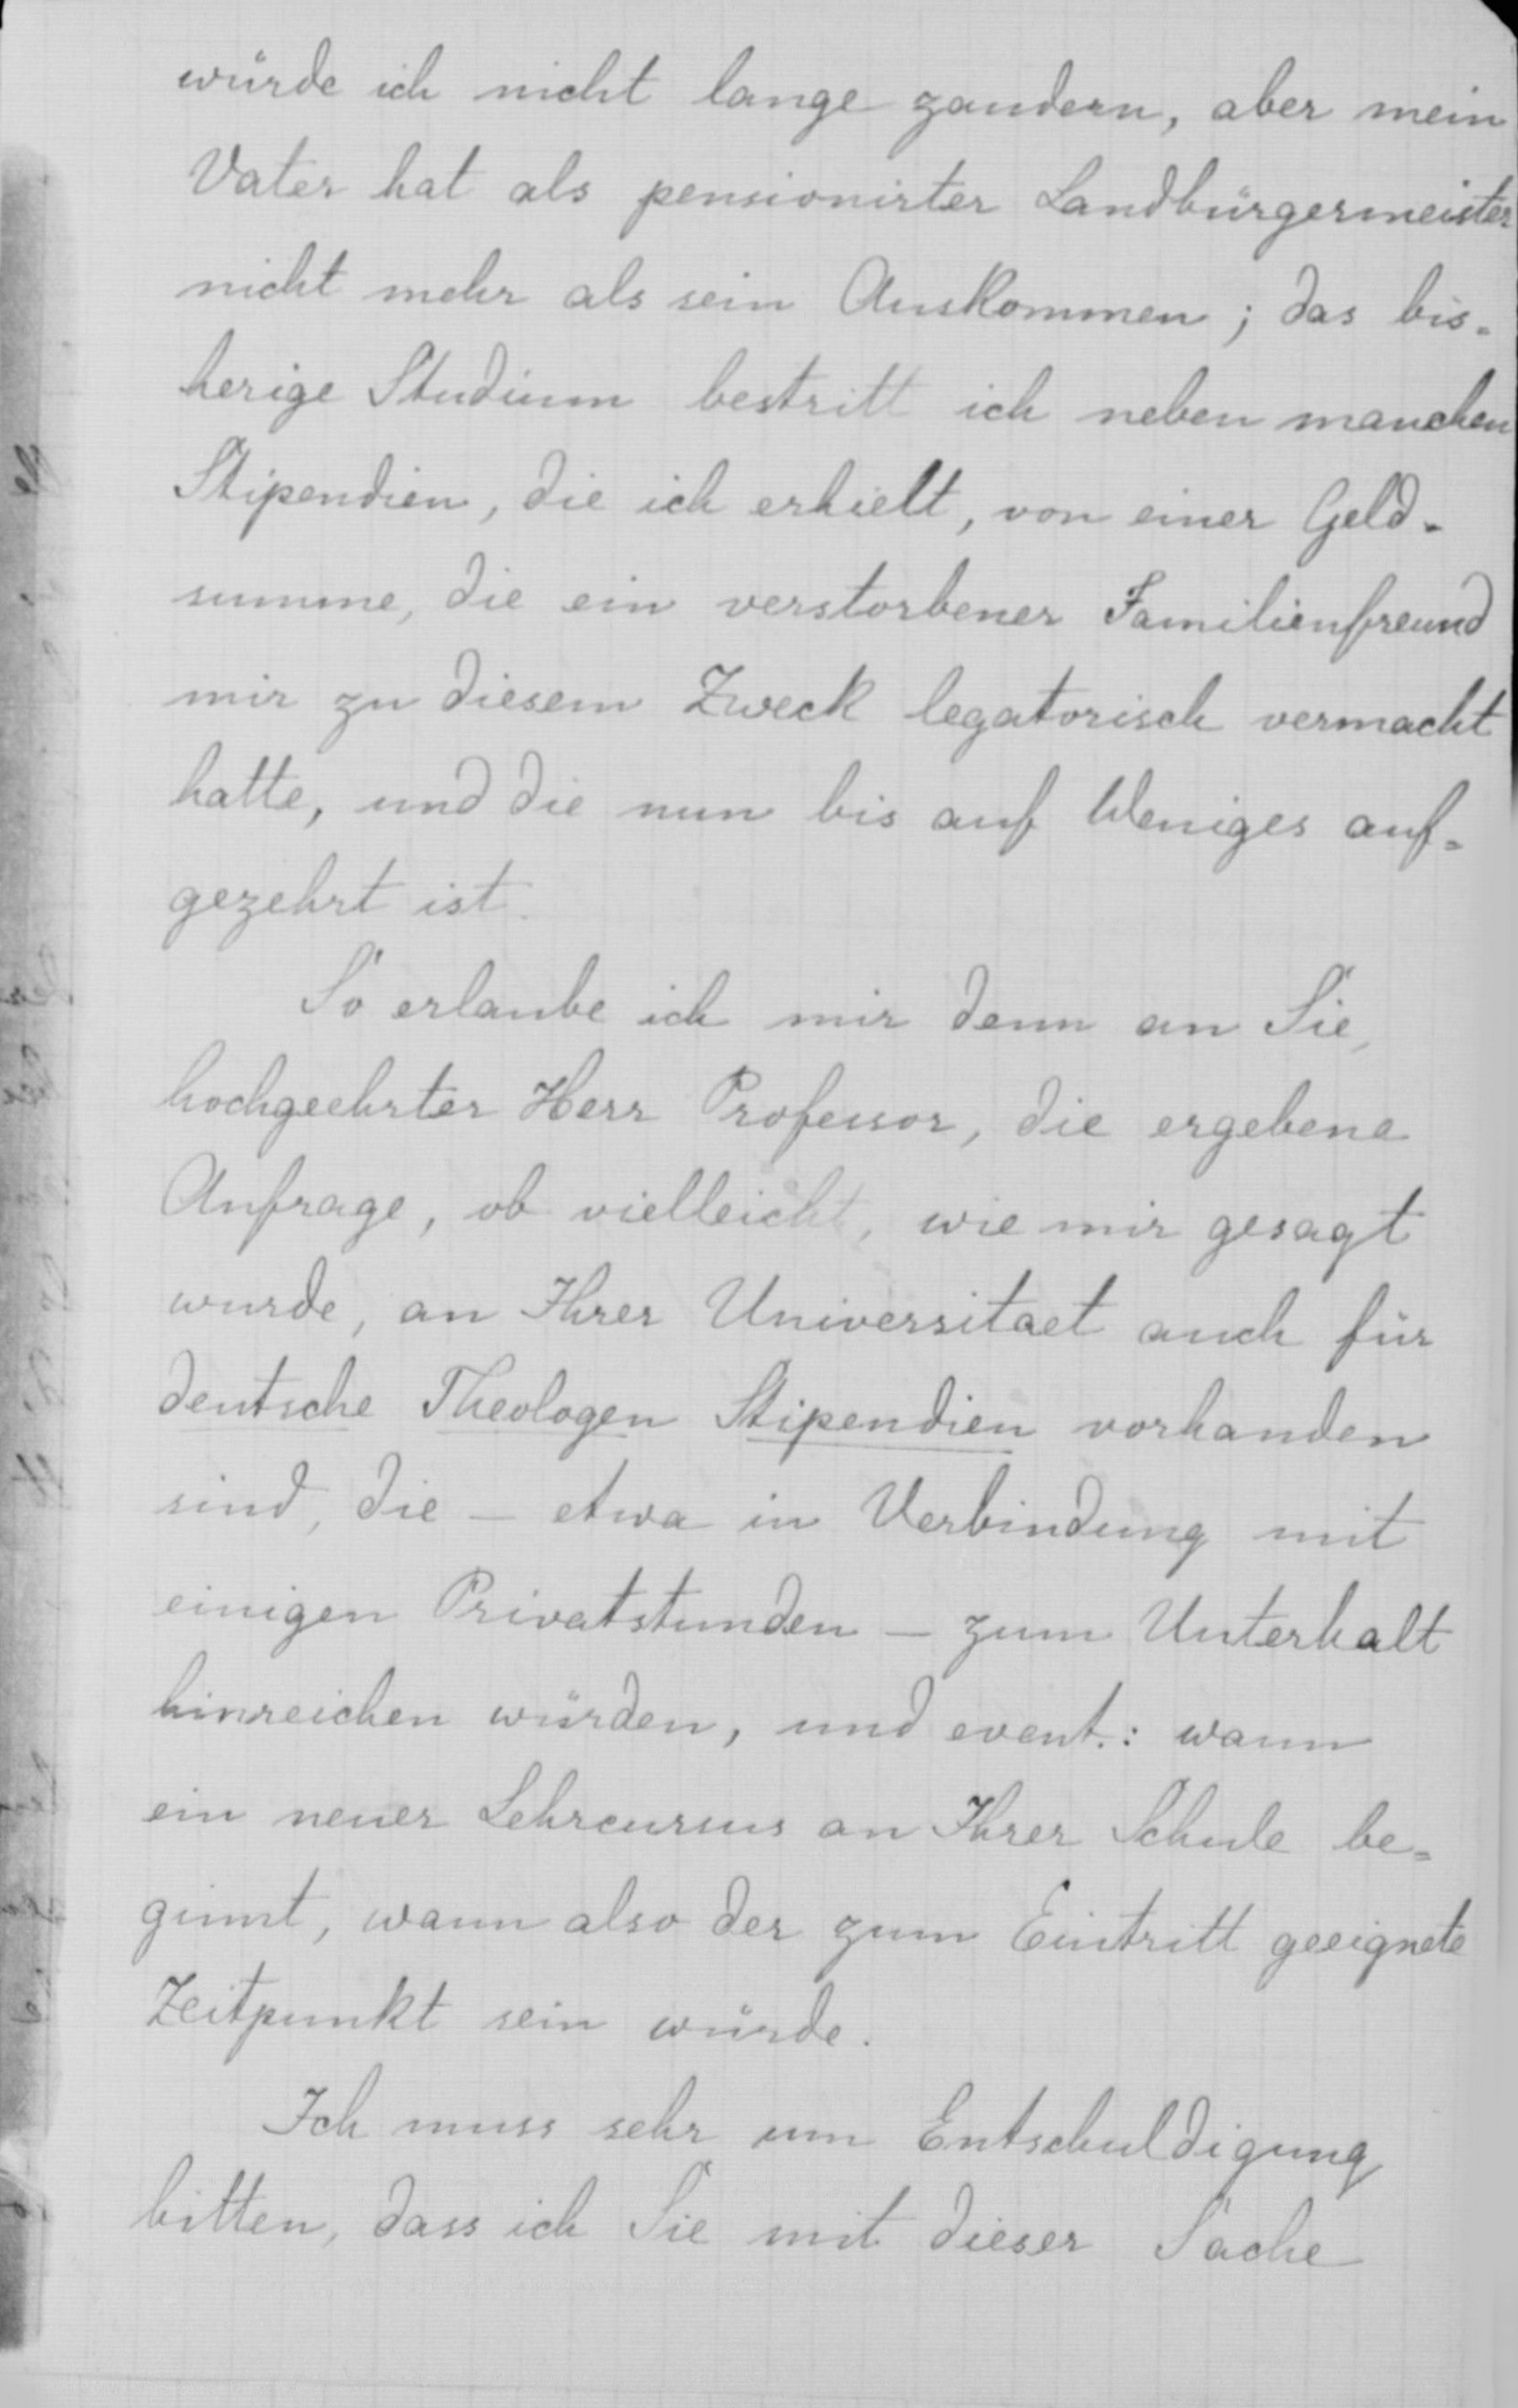 würde ich nicht lange zaudern, aber mein
Vater hat als pensionirter Landbürgermeister
nicht mehr als sein Auskommen; das bis=
herige Studium bestritt ich neben manchen
Stipendien, die ich erhielt, von einer Geld=
summe, die ein verstorbener Familienfreund
mir zu diesem Zweck legatorisch vermacht
hatte, und die nun bis auf Weniges auf=
gezehrt ist.
So erlaube ich mir denn an Sie,
hochgeehrter Herr Professor, die ergebene
Anfrage, ob vielleicht, wie mir gesagt
wurde, an Ihrer Universitaet auch für
deutsche Theologen Stipendien vorhanden
sind, die — etwa in Verbindung mit
einigen Privatstunden — zum Unterhalt
hinreichen würden, und event.: wann
ein neuer Lehrcursus an Ihrer Schule be=
ginnt, wann also der zum Eintritt geeignete
Zeitpunkt sein würde.
Ich muss sehr um Entschuldigung
bitten, dass ich Sie mit dieser Sache